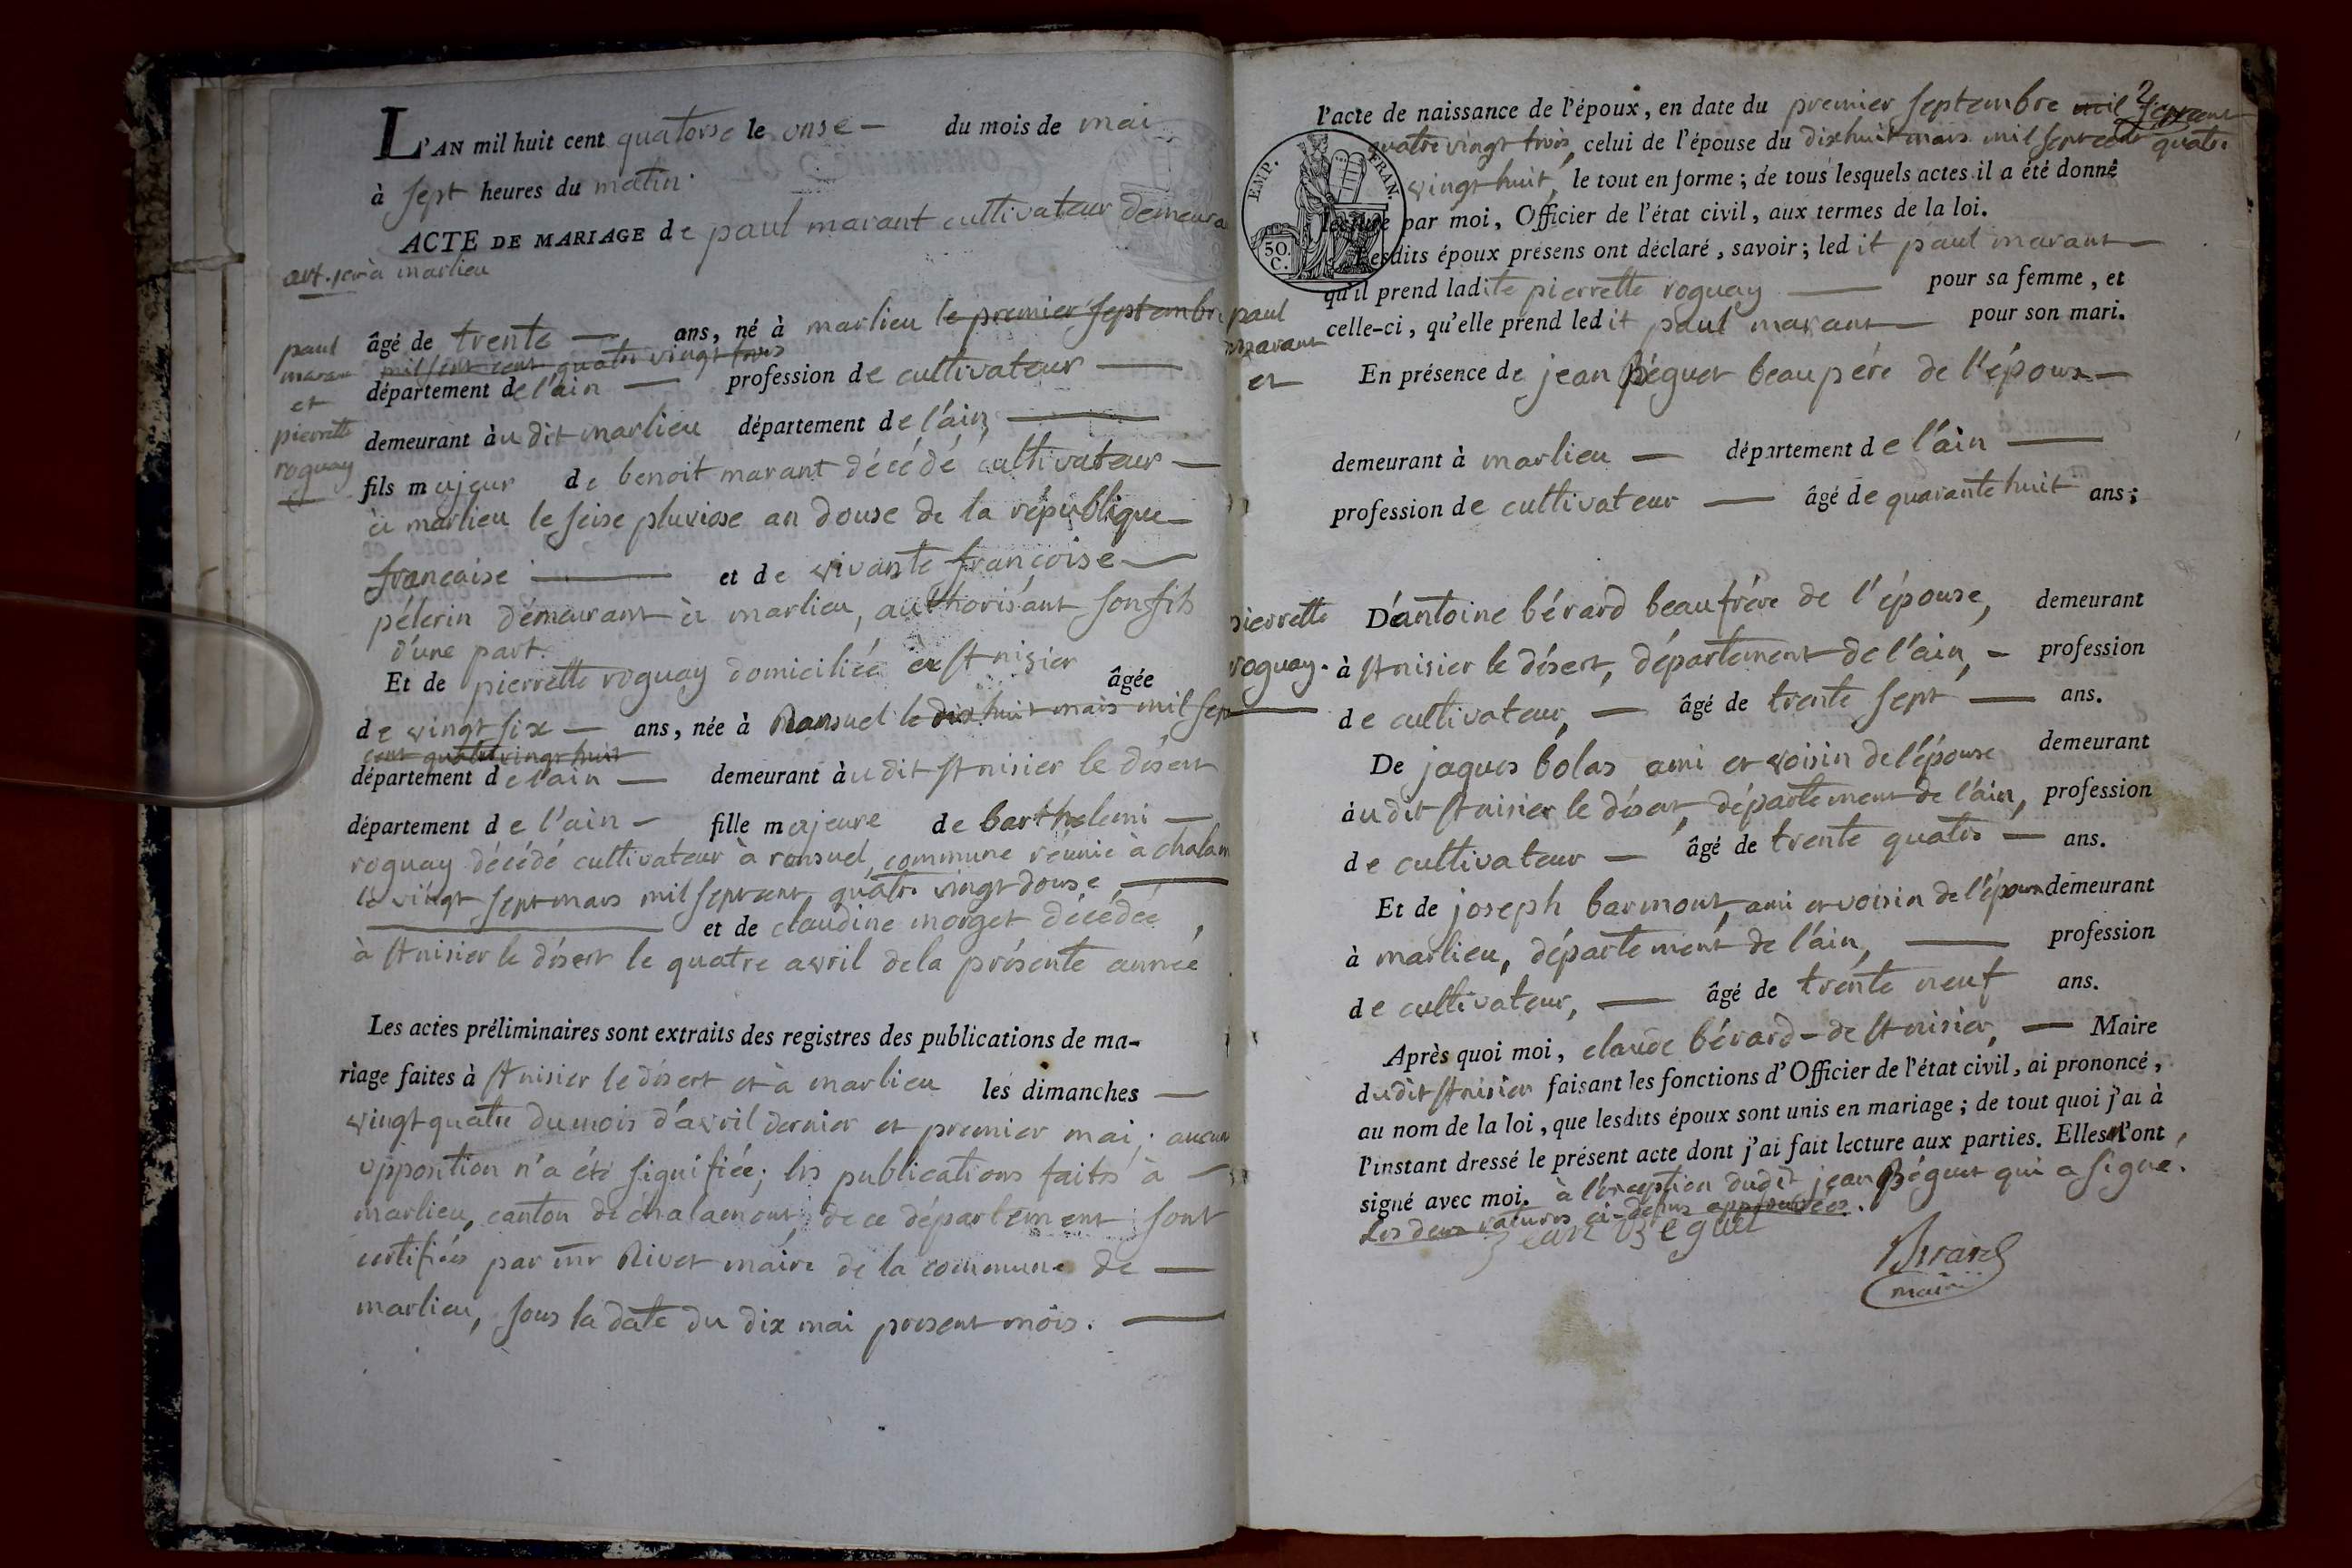 L'AN mil huit cent quatorse le onse — du mois de mai
à sept heures du matin.
ACTE DE MARIAGE de paul marant cultivateur demeura
art. 1er à marlieu
âgé de trente — ans, né à marlieu le premier septembre
mil sept cent quatre vingt trois
paul
marant
et
pierrette
roguay
département de l'ain — profession de cultivateur —
demeurant àudit marlieu département de l'ain —
fils majeur de benoit marant décédé cultivateur —
à marlieu le seise pluviose an douse de la république —
françaice — et de vivante françoise —
pélerin démeurant à marlieu, authorisant son fils
d'une part.
Et de pierrette roguay domiciliée à st nisier âgée
de vingt six — ans, née à Ronsuel le dix huit mais mil sep
cent quatre vingt huit
département de l'ain — demeurant àudit st nisier le désert
département de l'ain — fille majeure de barthelemi —
roguay décédé cultivateur à ronsuel, commune réunie à chalam
le vingt sept mars mil sept cent quatre vingt douse, —
et de claudine morget décédée,
à st nisier le désert le quatre avril de la présente année
Les actes préliminaires sont extraits des registres des publications de ma-
riage faites à st nisier le désert et à marlieu les dimanches —
vingt quatre du mois d'avril dernier et premier mai; aucun
opposition n'a été signifiée; les publications faites à —
marlieu, canton de chalamont, de ce département sont
certifiées par mr Rivet maire de la commune de —
marlieu, sous la date du dix mai present mois. —
2
l'acte de naissance de l'époux, en date du premier septembre mil sept cent
quatre vingt trois, celui de l'épouse du dix huit mars mil sept cent quatre
vingt huit, le tout en forme; de tous lesquels actes il a été donné
lecture par moi, Officier de l'état civil, aux termes de la loi.
EMP. FRAN.
50.
C.
Lesdits époux présens ont déclaré, savoir; ledit paul marant —
qu'il prend ladite pierrette roguay — pour sa femme, et
celle-ci, qu'elle prend ledit paul marant — pour son mari.
paul
marant
et
pierrette
roguay.
En présence de jean Béguet beaupére de l'époux —
demeurant à marlieu — département de l'ain —
profession de cultivateur — âgé de quarante huit ans;
D'antoine bérard beaufrére de l'épouse, demeurant
à st nisier le désert, département de l'ain, — profession
de cultivateur, — âgé de trente sept — ans.
De jaques bolas ami et voisin de l'épouse demeurant
àudit st nisier le désert, département de l'ain, profession
de cultivateur — âgé de trente quatre — ans.
Et de joseph barmont, ami et voisin de l'époux demeurant
à marlieu, département de l'ain, — profession
de cultivateur, — âgé de trente neuf ans.
Après quoi moi, claude bérard — de st nisier, — Maire
dudit st nisier faisant les fonctions d'Officier de l'état civil, ai prononcé,
au nom de la loi, que lesdits époux sont unis en mariage; de tout quoi j'ai à
l'instant dressé le présent acte dont j'ai fait lecture aux parties. Elles n'ont,
signé avec moi. à l'exception dudit jean Béguet qui a signé.
Les deux ratures ci-dessus approuvées.
Jean Béguet
Berard
maire